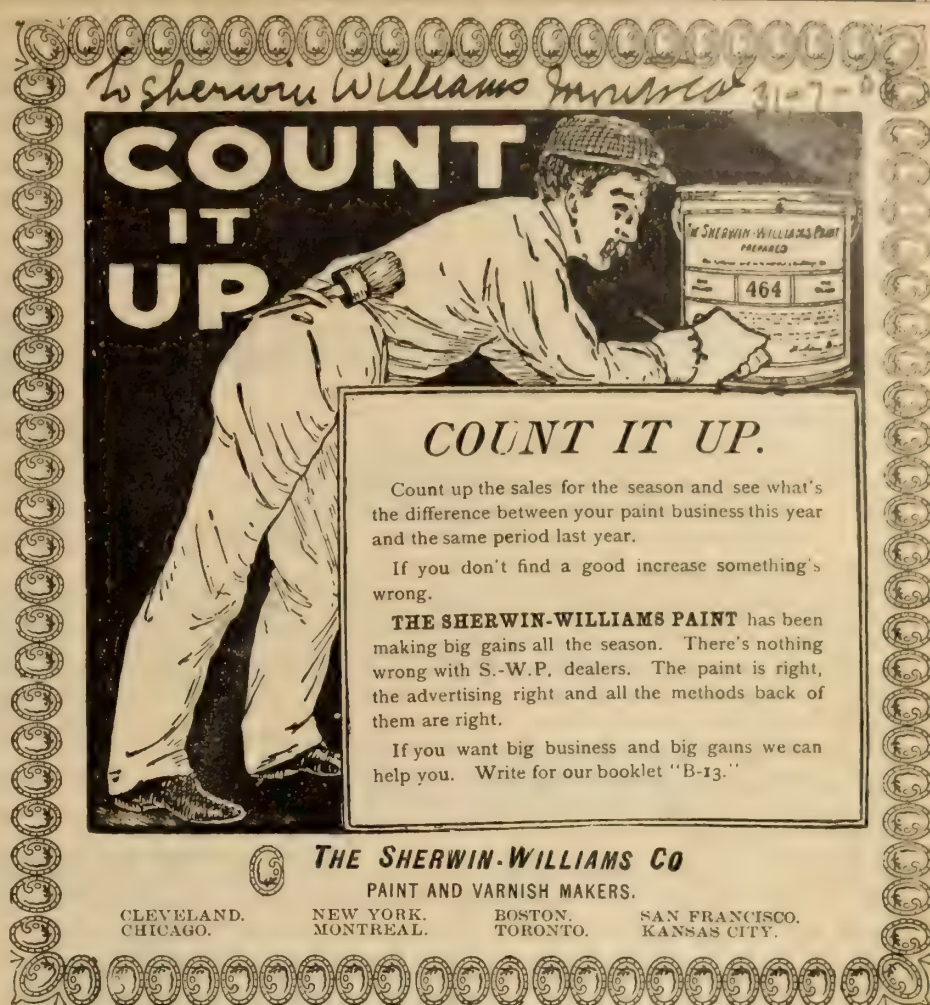 To Sherwin Williams Montreal 31-7-
COUNT
IT
UP
THE SHERWIN-WILLIAMS PAINT
PREPARED
464
COUNT IT UP.
Count up the sales for the season and see what's
the difference between your paint business this year
and the same period last year.
If you don't find a good increase something's
wrong.
THE SHERWIN-WILLIAMS PAINT has been
making big gains all the season. There's nothing
wrong with S.-W.P. dealers. The paint is right,
the advertising right and all the methods back of
them are right.
If you want big business and big gains we can
help you. Write for our booklet "B-13."
THE SHERWIN-WILLIAMS CO
PAINT AND VARNISH MAKERS.
CLEVELAND. NEW YORK. BOSTON. SAN FRANCISCO.
CHICAGO. MONTREAL. TORONTO. KANSAS CITY.